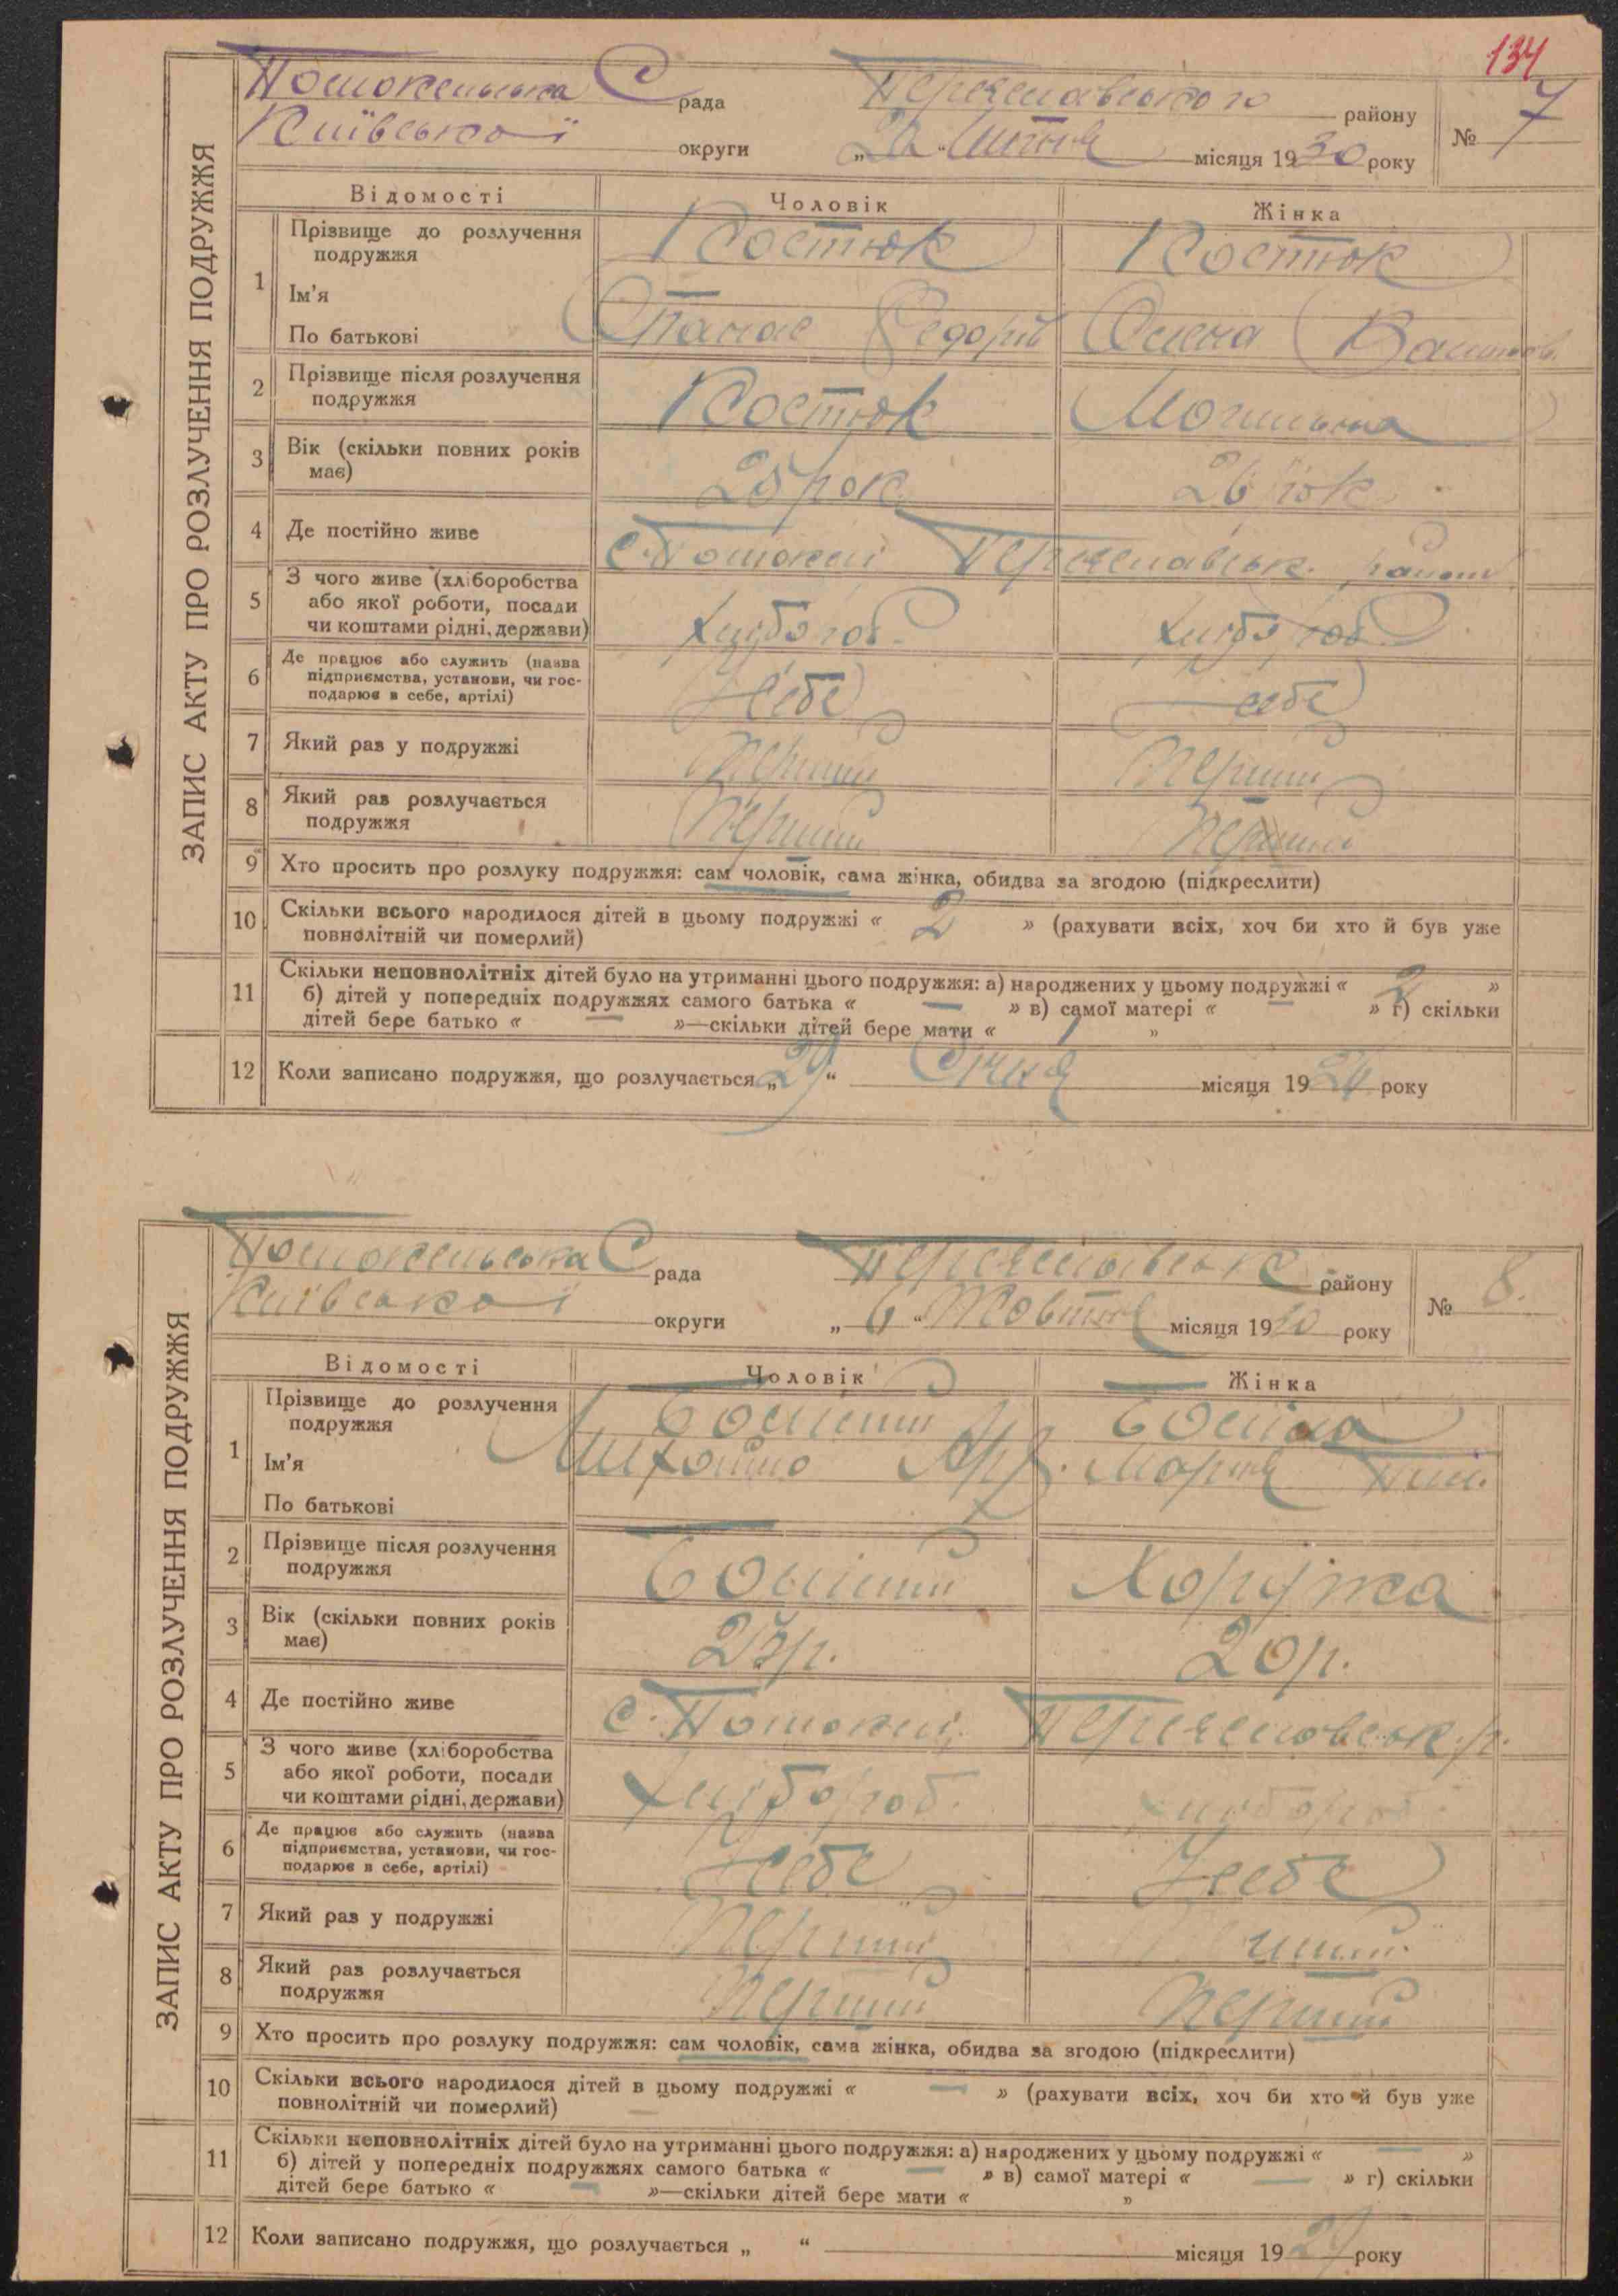 134
ЗАПИС АКТУ ПРО РОЗЛУЧЕННЯ ПОДРУЖЖЯ
С рада Переяславського району № 7
Київської округи „20“ місяця 1930 року
Відомості Чоловік Жінка
1 Прізвище до розлучення подружжя Костюк Костюк
Ім'я Опанас Федорів Олена
По батькові
2 Прізвище після розлучення подружжя Костюк
3 Вік (скільки повних років має) 25 рок 26 рок
4 Де постійно живе с. Переяславськ. району
5 З чого живе (хліборобства
або якої роботи, посади
чи коштами рідні, держави) Хлібороб Хлібороб
6 Де працює або служить (назва
підприємства, установи, чи гос-
подарює в себе, артілі) себе себе
7 Який раз у подружжі перший перший
8 Який раз розлучається подружжя перший перший
9 Хто просить про розлуку подружжя: сам чоловік, сама жінка, обидва за згодою (підкреслити)
10 Скільки всього народилося дітей в цьому подружжі « 2 » (рахувати всіх, хоч би хто й був уже
повнолітній чи померлий)
11 Скільки неповнолітніх дітей було на утриманні цього подружжя: а) народжених у цьому подружжі « 2 »
б) дітей у попередніх подружжях самого батька « — » в) самої матері « — » г) скільки
дітей бере батько « — »—скільки дітей бере мати « 1 »
12 Коли записано подружжя, що розлучається „29“ Січня місяця 1924 року
ЗАПИС АКТУ ПРО РОЗЛУЧЕННЯ ПОДРУЖЖЯ
С рада Переяславськ району № 8.
Київської округи „6“ Жовтня місяця 1930 року
Відомості Чоловік Жінка
1 Прізвище до розлучення подружжя
Ім'я Михайло
По батькові
2 Прізвище після розлучення подружжя Хоружа
3 Вік (скільки повних років має) 23 р. 20 р.
4 Де постійно живе с. Переяславськ. р.
5 З чого живе (хліборобства
або якої роботи, посади
чи коштами рідні, держави) Хлібороб. хлібороб.
6 Де працює або служить (назва
підприємства, установи, чи гос-
подарює в себе, артілі) себе себе
7 Який раз у подружжі перший
8 Який раз розлучається подружжя перший перший
9 Хто просить про розлуку подружжя: сам чоловік, сама жінка, обидва за згодою (підкреслити)
10 Скільки всього народилося дітей в цьому подружжі « — » (рахувати всіх, хоч би хто й був уже
повнолітній чи померлий)
11 Скільки неповнолітніх дітей було на утриманні цього подружжя: а) народжених у цьому подружжі « — »
б) дітей у попередніх подружжях самого батька « — » в) самої матері « — » г) скільки
дітей бере батько « — »—скільки дітей бере мати « »
12 Коли записано подружжя, що розлучається „ “ місяця 1929 року